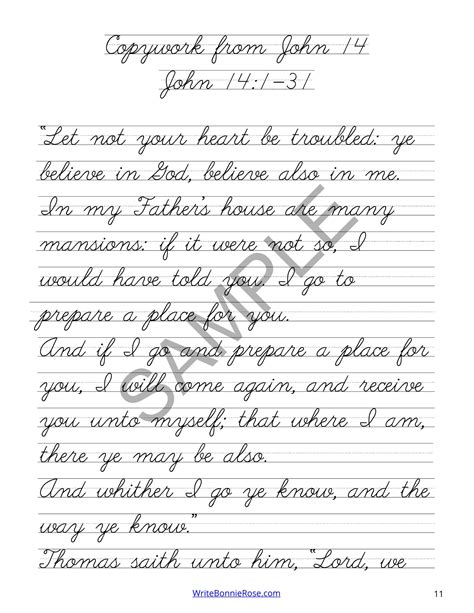 Copywork from John 14
John 14:1-31
"Let not your heart be troubled: ye
believe in God, believe also in me.
In my Father's house are many
mansions: if it were not so, I
would have told you. I go to
prepare a place for you.
And if I go and prepare a place for
you, I will come again, and receive
you unto myself; that where I am,
there ye may be also.
And whither I go ye know, and the
way ye know."
Thomas saith unto him, "Lord, we
SAMPLE
WriteBonnieRose.com
11